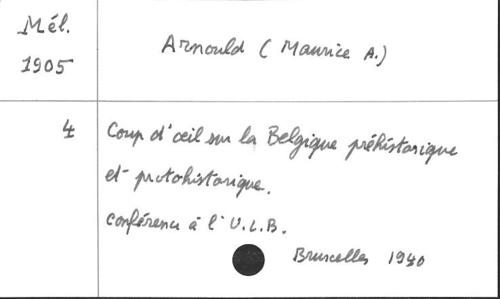 Mél.
1905
Arnould (Maurice A.)
4
Coup d'œil sur la Belgique préhistorique
et protohistorique.
Conférence à l'U.L.B.
Bruxelles 1940